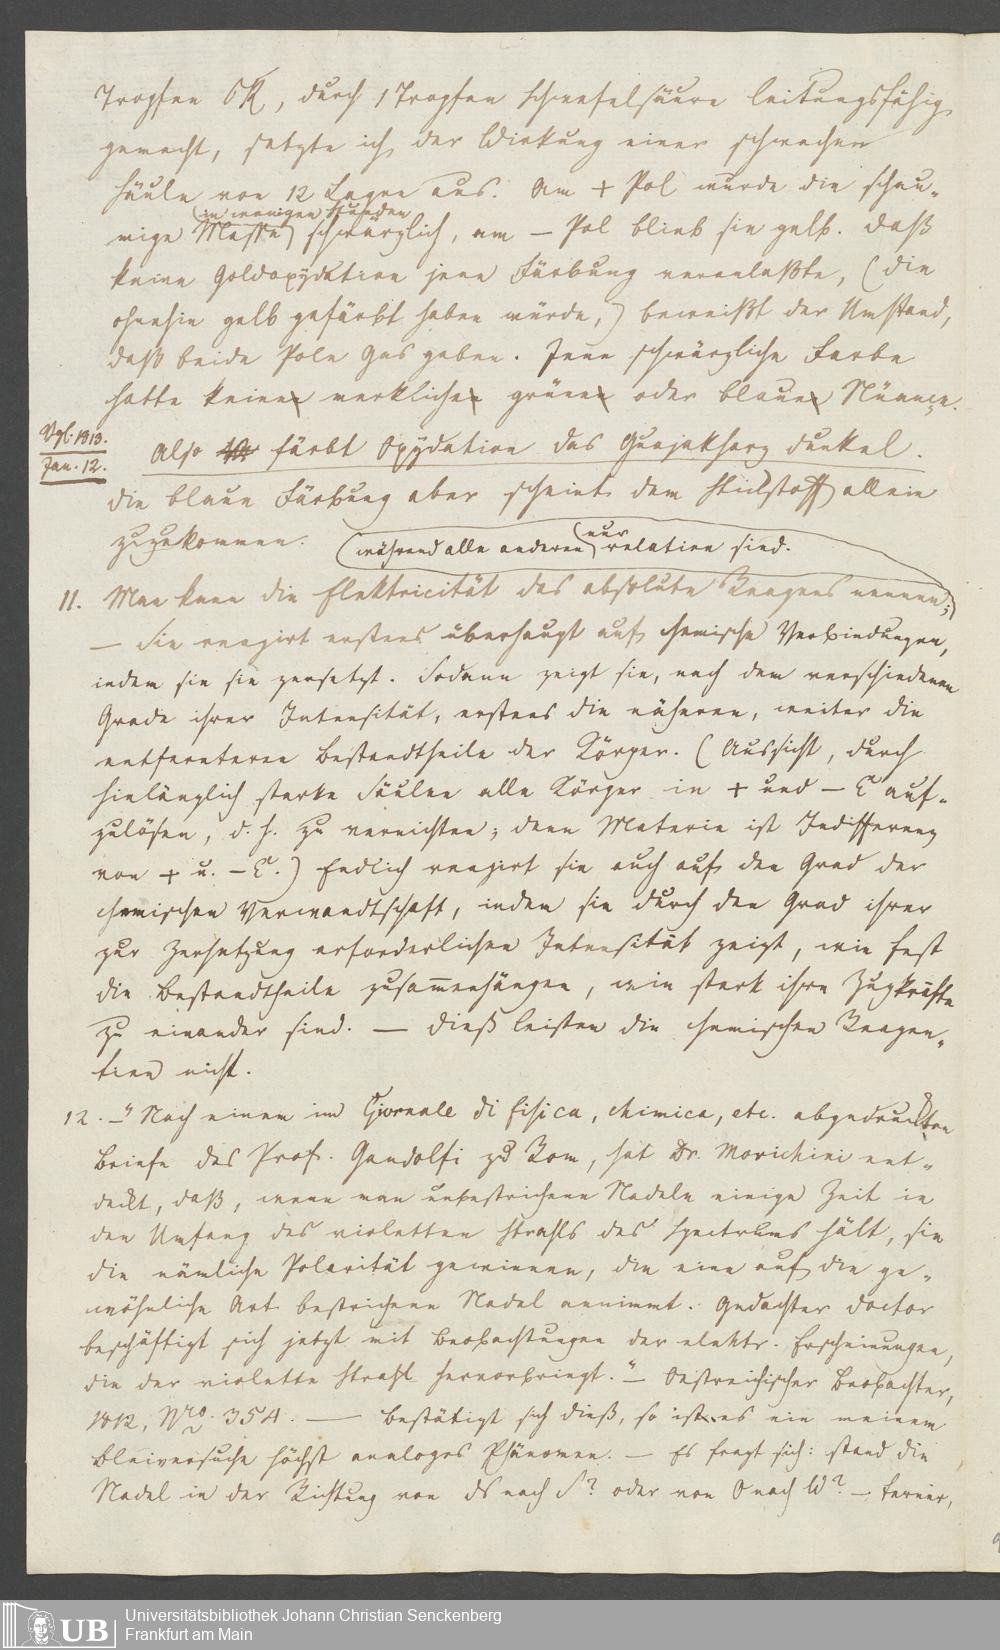 Tropfen OK, durch 1 Tropfen Schwefelsäure leitungsfähig
gemacht, setzte ich der Wirkung einer schwachen
Säule von 12 Lagen aus. Am + Pol wurde die schau-
(in wenigen Stunden
mige Masse) schwärzlich, am — Pol blieb sie gelb. Daß
keine Goldoxydation jene Färbung veranlaßte, (die
ohnehin gelb gefärbt haben würde,) beweißt der Umstand,
daß beide Pole Gas gaben. Jene schwärzliche Farbe
hatte keine merkliche grüne oder blaue Nüance.
Vgl. 1813.
Jan. 12.
Also färbt Oxydation das Guajakharz dunkel.
Die blaue Färbung aber scheint dem Stickstoff allein
zuzukommen.
(während alle anderen (nur) relativ sind.
11. Man kann die Elektricität das absolute Reagens nennen;)
— Sie reagirt erstens überhaupt auf chemische Verbindungen,
indem sie sie zersetzt. Sodann zeigt sie, nach dem verschiedenen
Grade ihrer Intensität, erstens die näheren, weiter die
entfernteren Bestandtheile der Körper. (Aussicht, durch
hinlänglich starke Säulen alle Körper in + und — E auf-
zulösen, d. h. zu vernichten; denn Materie ist Indifferenz
von + u. — E.) Endlich reagirt sie auch auf den Grad der
chemischen Verwandtschaft, indem sie durch den Grad ihrer
zur Zersetzung erforderlichen Intensität zeigt, wie fest
die Bestandtheile zusam̅enhängen, wie stark ihre Zugkräfte
zu einander sind. — Dieß leisten die chemischen Reagen-
tien nicht.
12. — "Nach einem im Giornale di fisica, chimica, etc. abgedruckten
Briefe des Prof. Gandolfi zu Rom, hat Dr. Morichini ent-
deckt, daß, wenn man unbestrichene Nadeln einige Zeit in
den Umfang des violetten Strahls des Spectrums hält, sie
die nämliche Polarität gewinnen, die eine auf die ge-
wöhnliche Art bestrichene Nadel annimmt. Gedachter Doctor
beschäftigt sich jetzt mit Beobachtungen der elektr. Erscheinungen,
die der violette Strahl hervorbringt." — Oestreichischer Beobachter,
1812, Nro. 354. — Bestätigt sich dieß, so ist es ein meinem
Bleiversuche höchst analoges Phänomen. — Es fragt sich: stand die
Nadel in der Richtung von N nach S? oder von O nach W? — Ferner,
Universitätsbibliothek Johann Christian Senckenberg
Frankfurt am Main
UB